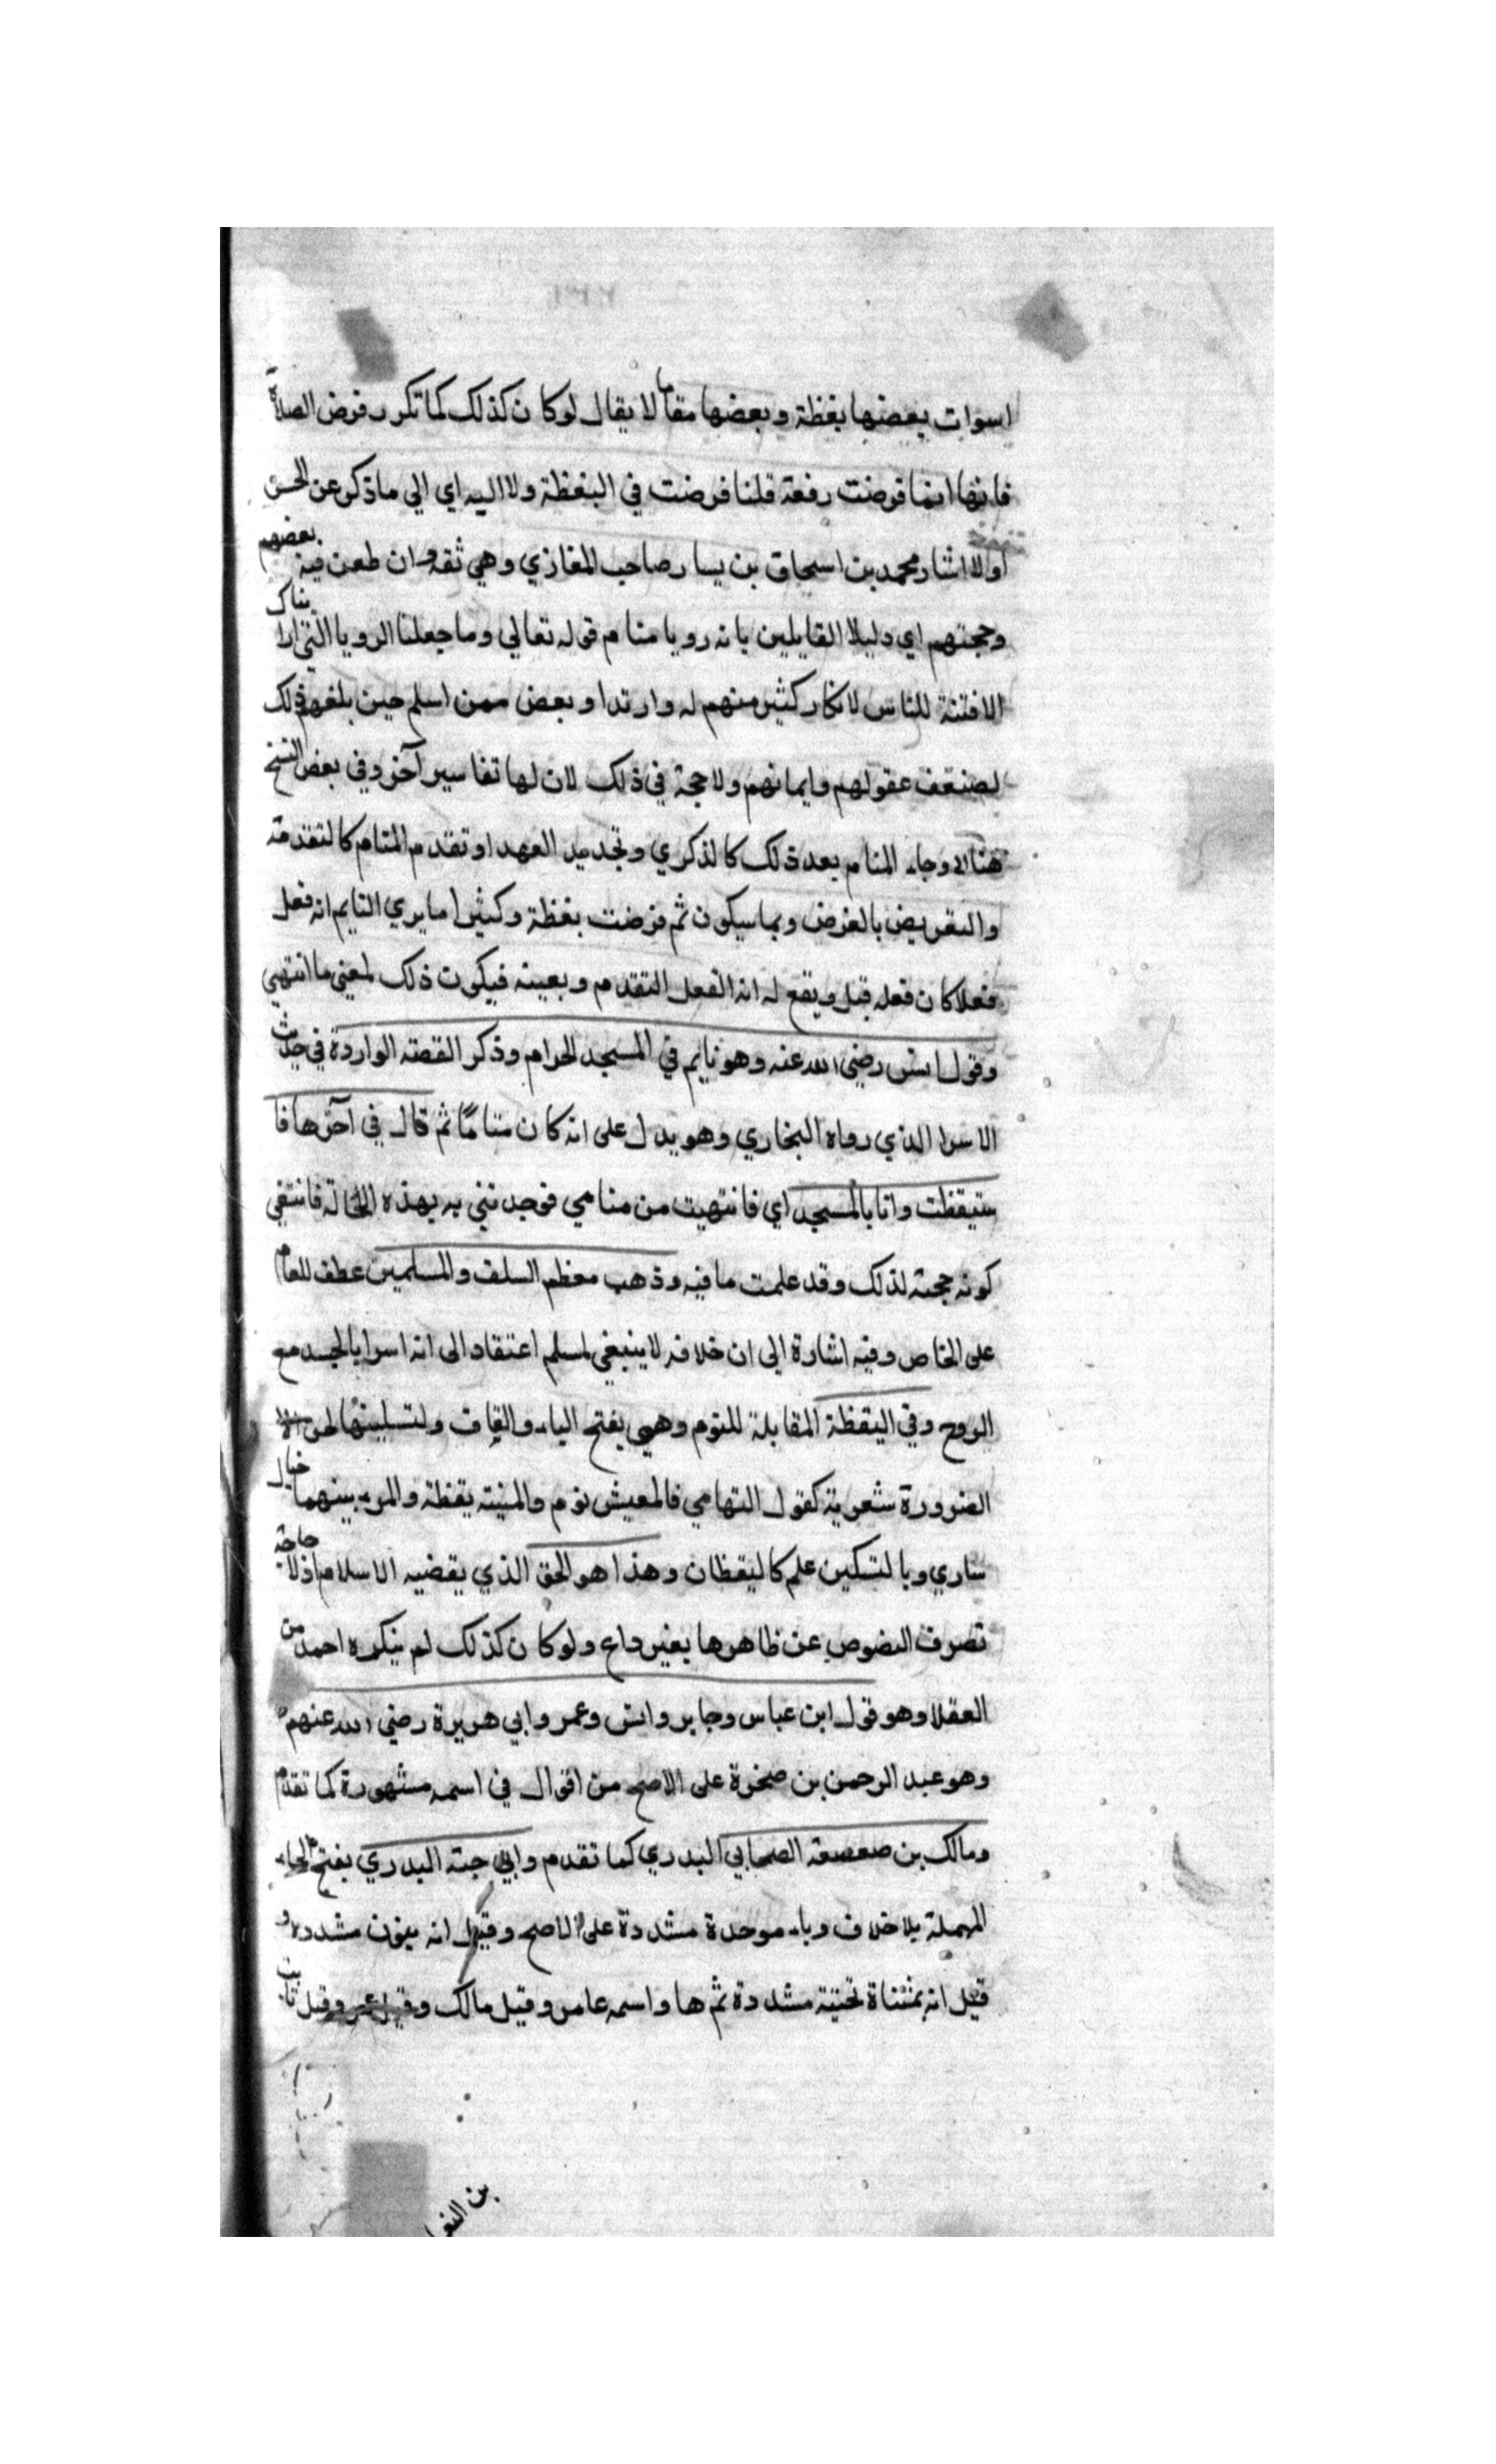 اسوات بعضها بغظة وبعضها مقاما لا يقال لو كان كذلك كما تكرر فرض الصلاة
فانها انما فرضت رفعة قلنا فرضت في اليغظة ولا اليه اي الي ما ذكر عن الحسن
اولا اشار محمد بن اسحاق بن يسار صاحب المغازي وهي ثقه وان طعن فيه بعضهم
وحجتهم اي دليلا القايلين بانه رويا منام قوله تعالي وما جعلنا الرويا التي اريناك
الا فتنة للناس لانكار كثير منهم له وارتدا وبعض ممن اسلم حين بلغهم ذلك
لضعف عقولهم وايمانهم ولا حجة في ذلك لان لها تفاسير آخر وفي بعض النسخ
هنا الا وجاء المنام بعد ذلك كالذكري وتجديد العهد او تقدم المنام كالتقدمة
والتعريض بالغرض وبما سيكون ثم فرضت بغظة وكثيرا ما يري النايم انه فعل
فعلا كان فعله قبل ويقع له انه الفعل المتقدم وبعينه فيكون ذلك لمعني ما انتهي
وقول انس رضي الله عنه وهو نايم في المسجد الحرام وذكر القصة الواردة في حديث
الاسرا الذي رواه البخاري وهو يدل على انه كان مناما ثم قال في آخرها فا
ستيقظت وانا بالمسجد اي فانتهيت من منامي فوجدتني به بهذه الحالة فانتفي
كونه حجته لذلك وقد علمت ما فيه وذهب معظم السلف والمسلمين عطف للعام
على الخاص وفيه اشارة الي ان خلافه لا ينبغي لمسلم اعتقاد الى انه اسرا بالجسد مع
الروح وفي اليقظة المقابلة للنوم وهي بفتح الياء والقاف ولتسكينها لحن الا
الضرورة شعرية كقول التهامي فالمعيش نوم والمنيته يقظة والمرء بينهما خيال
ساري وبالتسكين علم كاليقظان وهذا هو الحق الذي يقضيه الاسلام اذ لا حاجة
تصرف النصوص عن ظاهرها بغير داع ولو كان كذلك لم ينكره احمد من
العقلا وهو قول ابن عباس وجابر وانس وعمر وابي هريرة رضي الله عنهم
وهو عبد الرحمن بن صخرة على الاصح من اقوال في اسمه مشهورة كما تقدم
ومالك بن صعصعة الصحابي البدري كما تقدم وابي حبة البدري بفتح الحاء
المهملة بلا خلاف وباء موحدة مشددة على الاصح وقيل انه بنون مشدده و
قيل انه بمثناة تحتية مشددة ثم ها واسمه عامر وقيل مالك وقيل عمر وقيل ثابت
بن النعمان